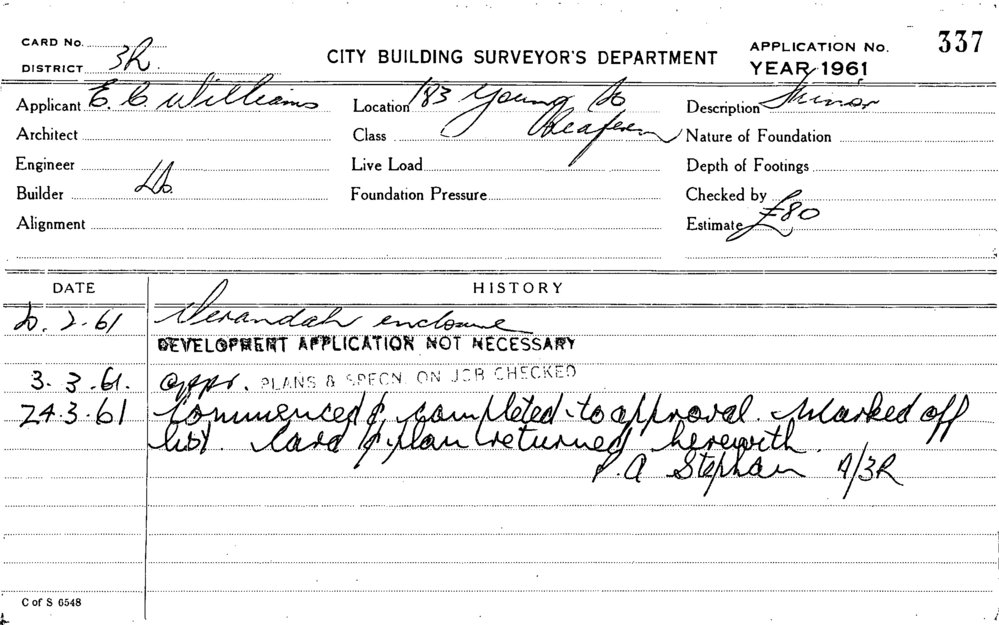 CARD No.
DISTRICT 3R.
CITY BUILDING SURVEYOR'S DEPARTMENT
APPLICATION No. 337
YEAR 1961
Applicant E. C. Williams
Location 183 Young St
Description Minor
Architect
Class Redfern
Nature of Foundation
Engineer
Live Load
Depth of Footings
Builder Do.
Foundation Pressure
Checked by
Alignment
Estimate £80
DATE
HISTORY
2.61 Verandah enclosure
DEVELOPMENT APPLICATION NOT NECESSARY
3.3.61. appr. PLANS & SPECN. ON JOB CHECKED
24.3.61 Commenced & completed to approval. Marked off
list. Card & plan returned herewith.
P. A Stephan A/3R
C of S 6548